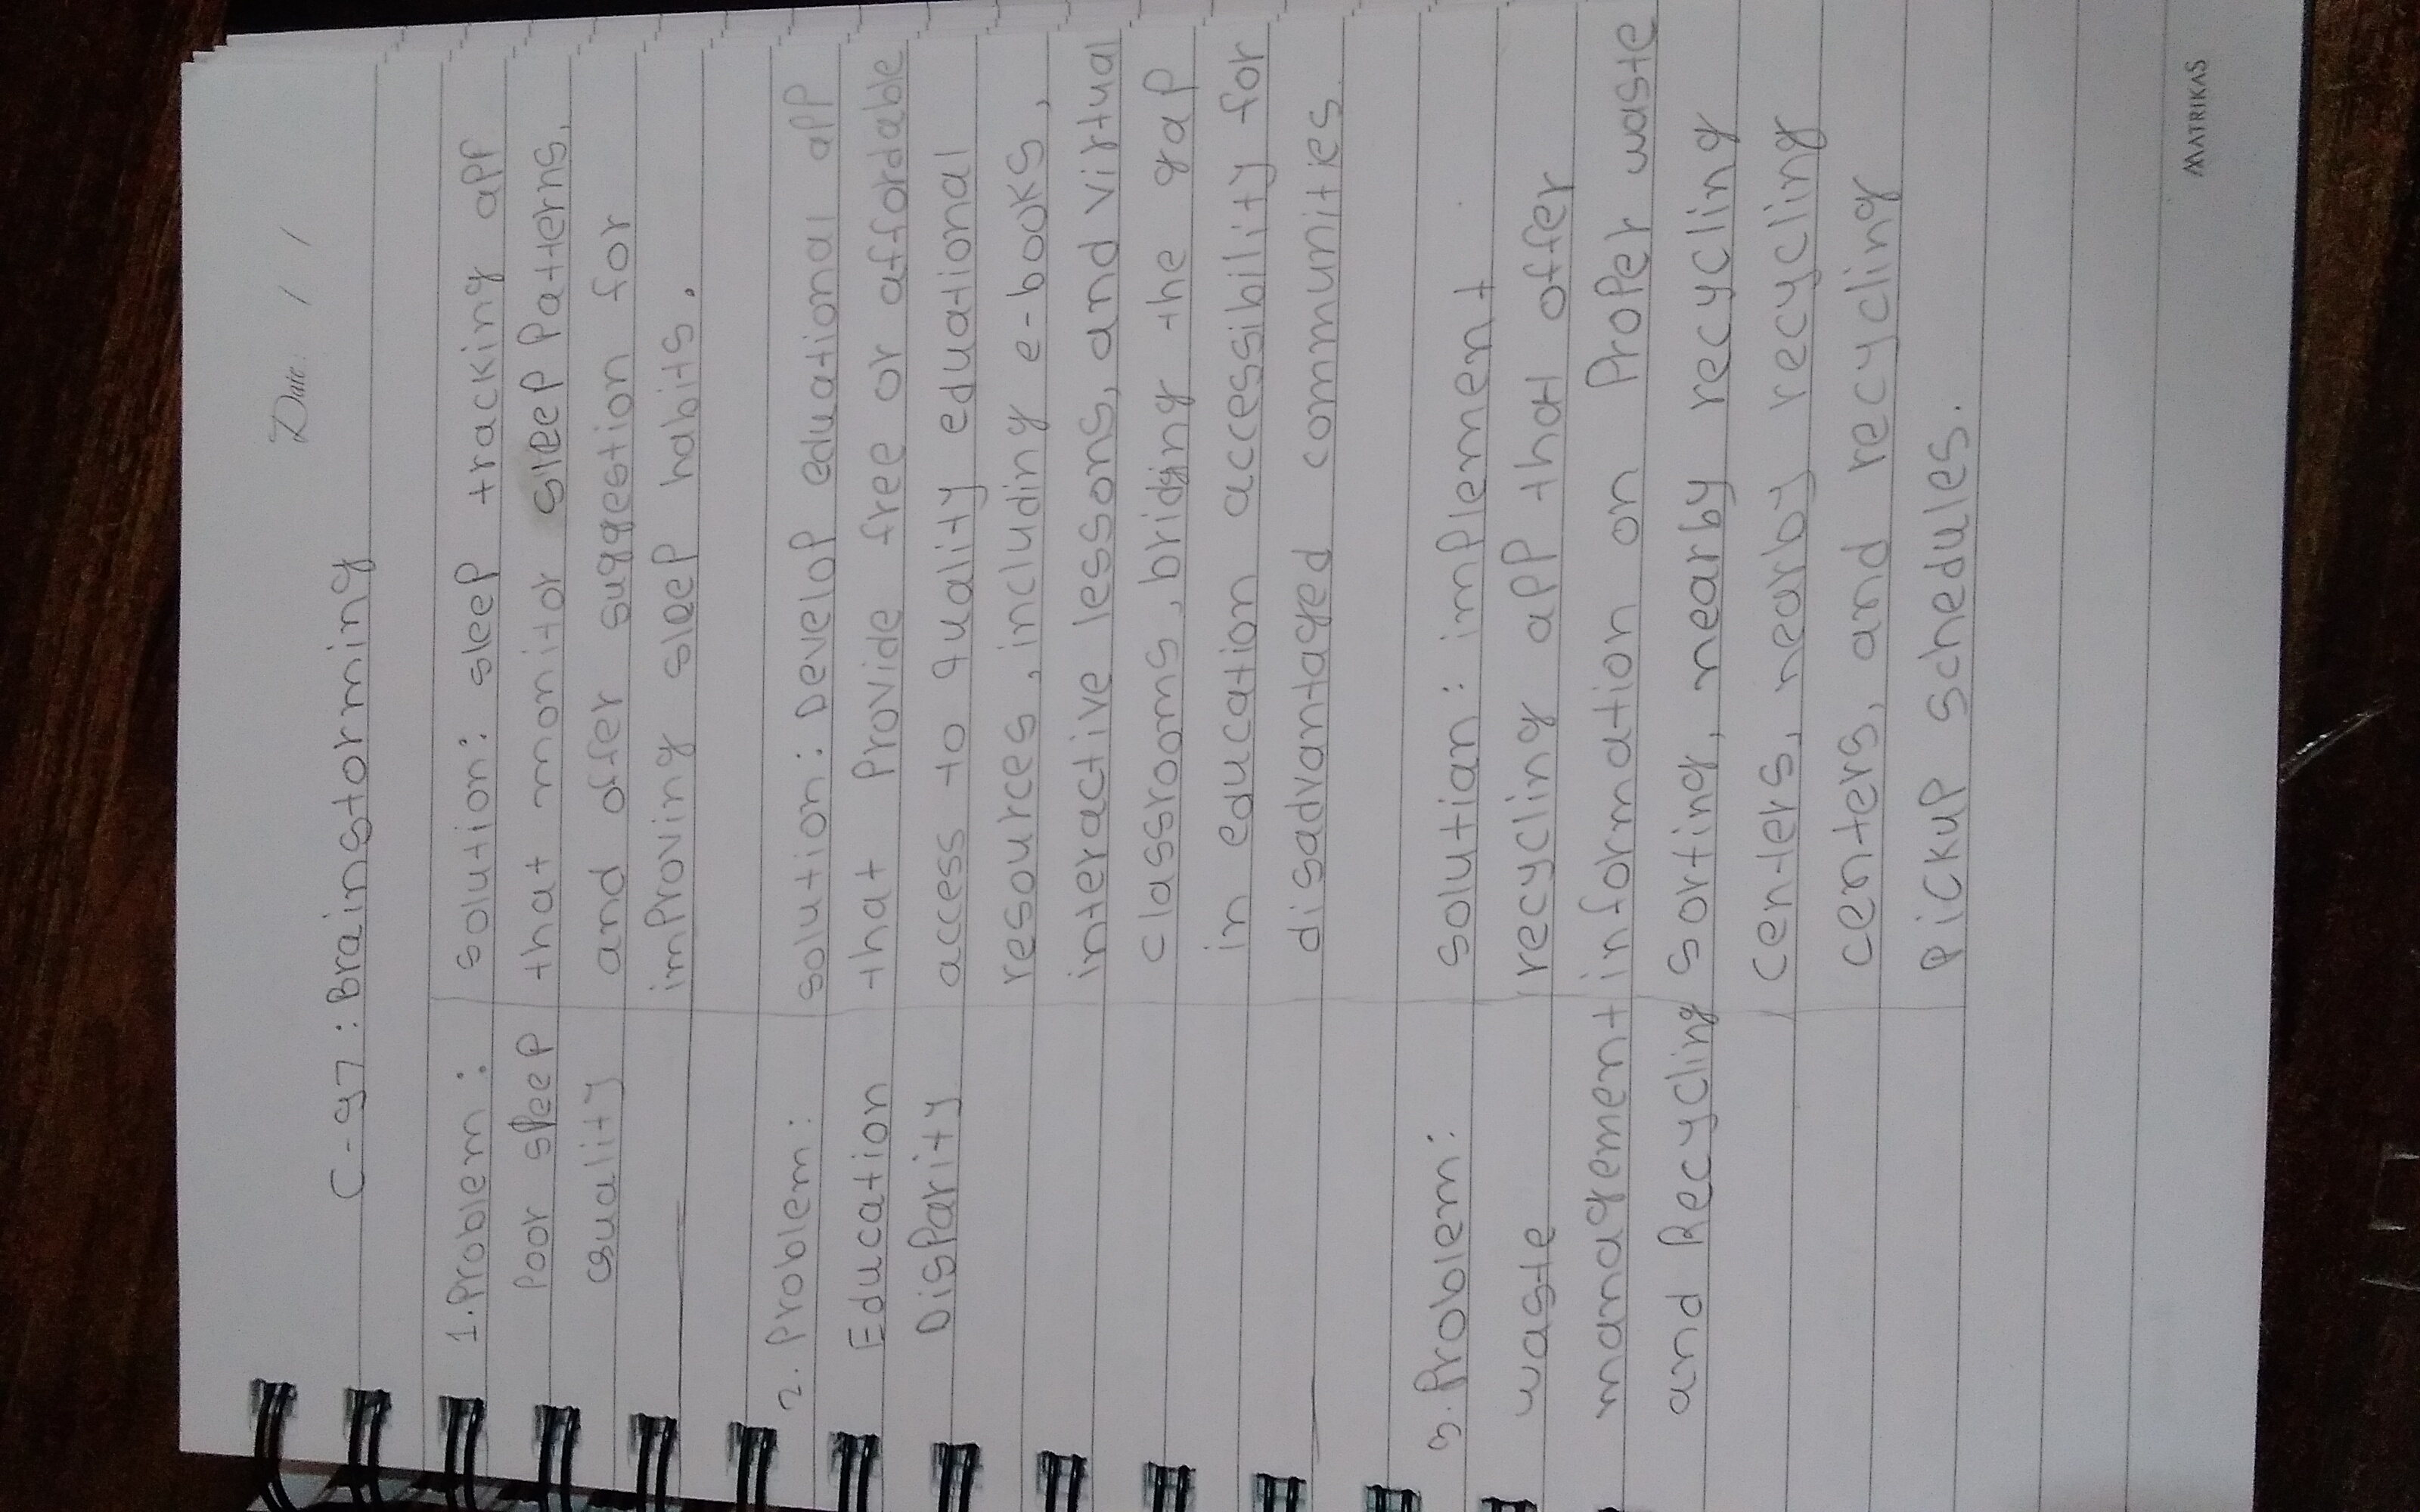 Date: / /
C-97: Brainstorming
1. Problem:
Poor sleep
Quality
solution: sleep tracking app
that monitor sleep Patterns,
and offer suggestion for
improving sleep habits.
2. Problem:
Education
Disparity
solution: Develop eduational app
that Provide free or affordable
access to quality eduational
resources, including e-books,
interactive lessons, and virtual
classrooms, bridging the gap
in education accessibility for
disadvantaged communities
3. Problem:
waste
management
and Recycling
solutian: implement
recycling app that offer
information on Proper waste
sorting, nearby recycling
centers, nearby recycling
centers, and recycling
Pickup schedules.
MATRIKAS